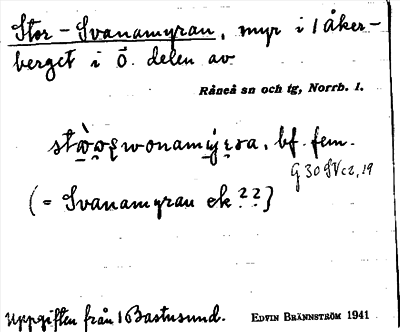 Stor-Svanamyran, myr i Åker-
berget i Ö. delen av
Råneå sn och tg, Norrb. l.
bf. fem.
G 30 SV c2, 19
(= Svanamyran ek ??)
Uppgiften från Bastusund. EDVIN BRÄNNSTRÖM 1941